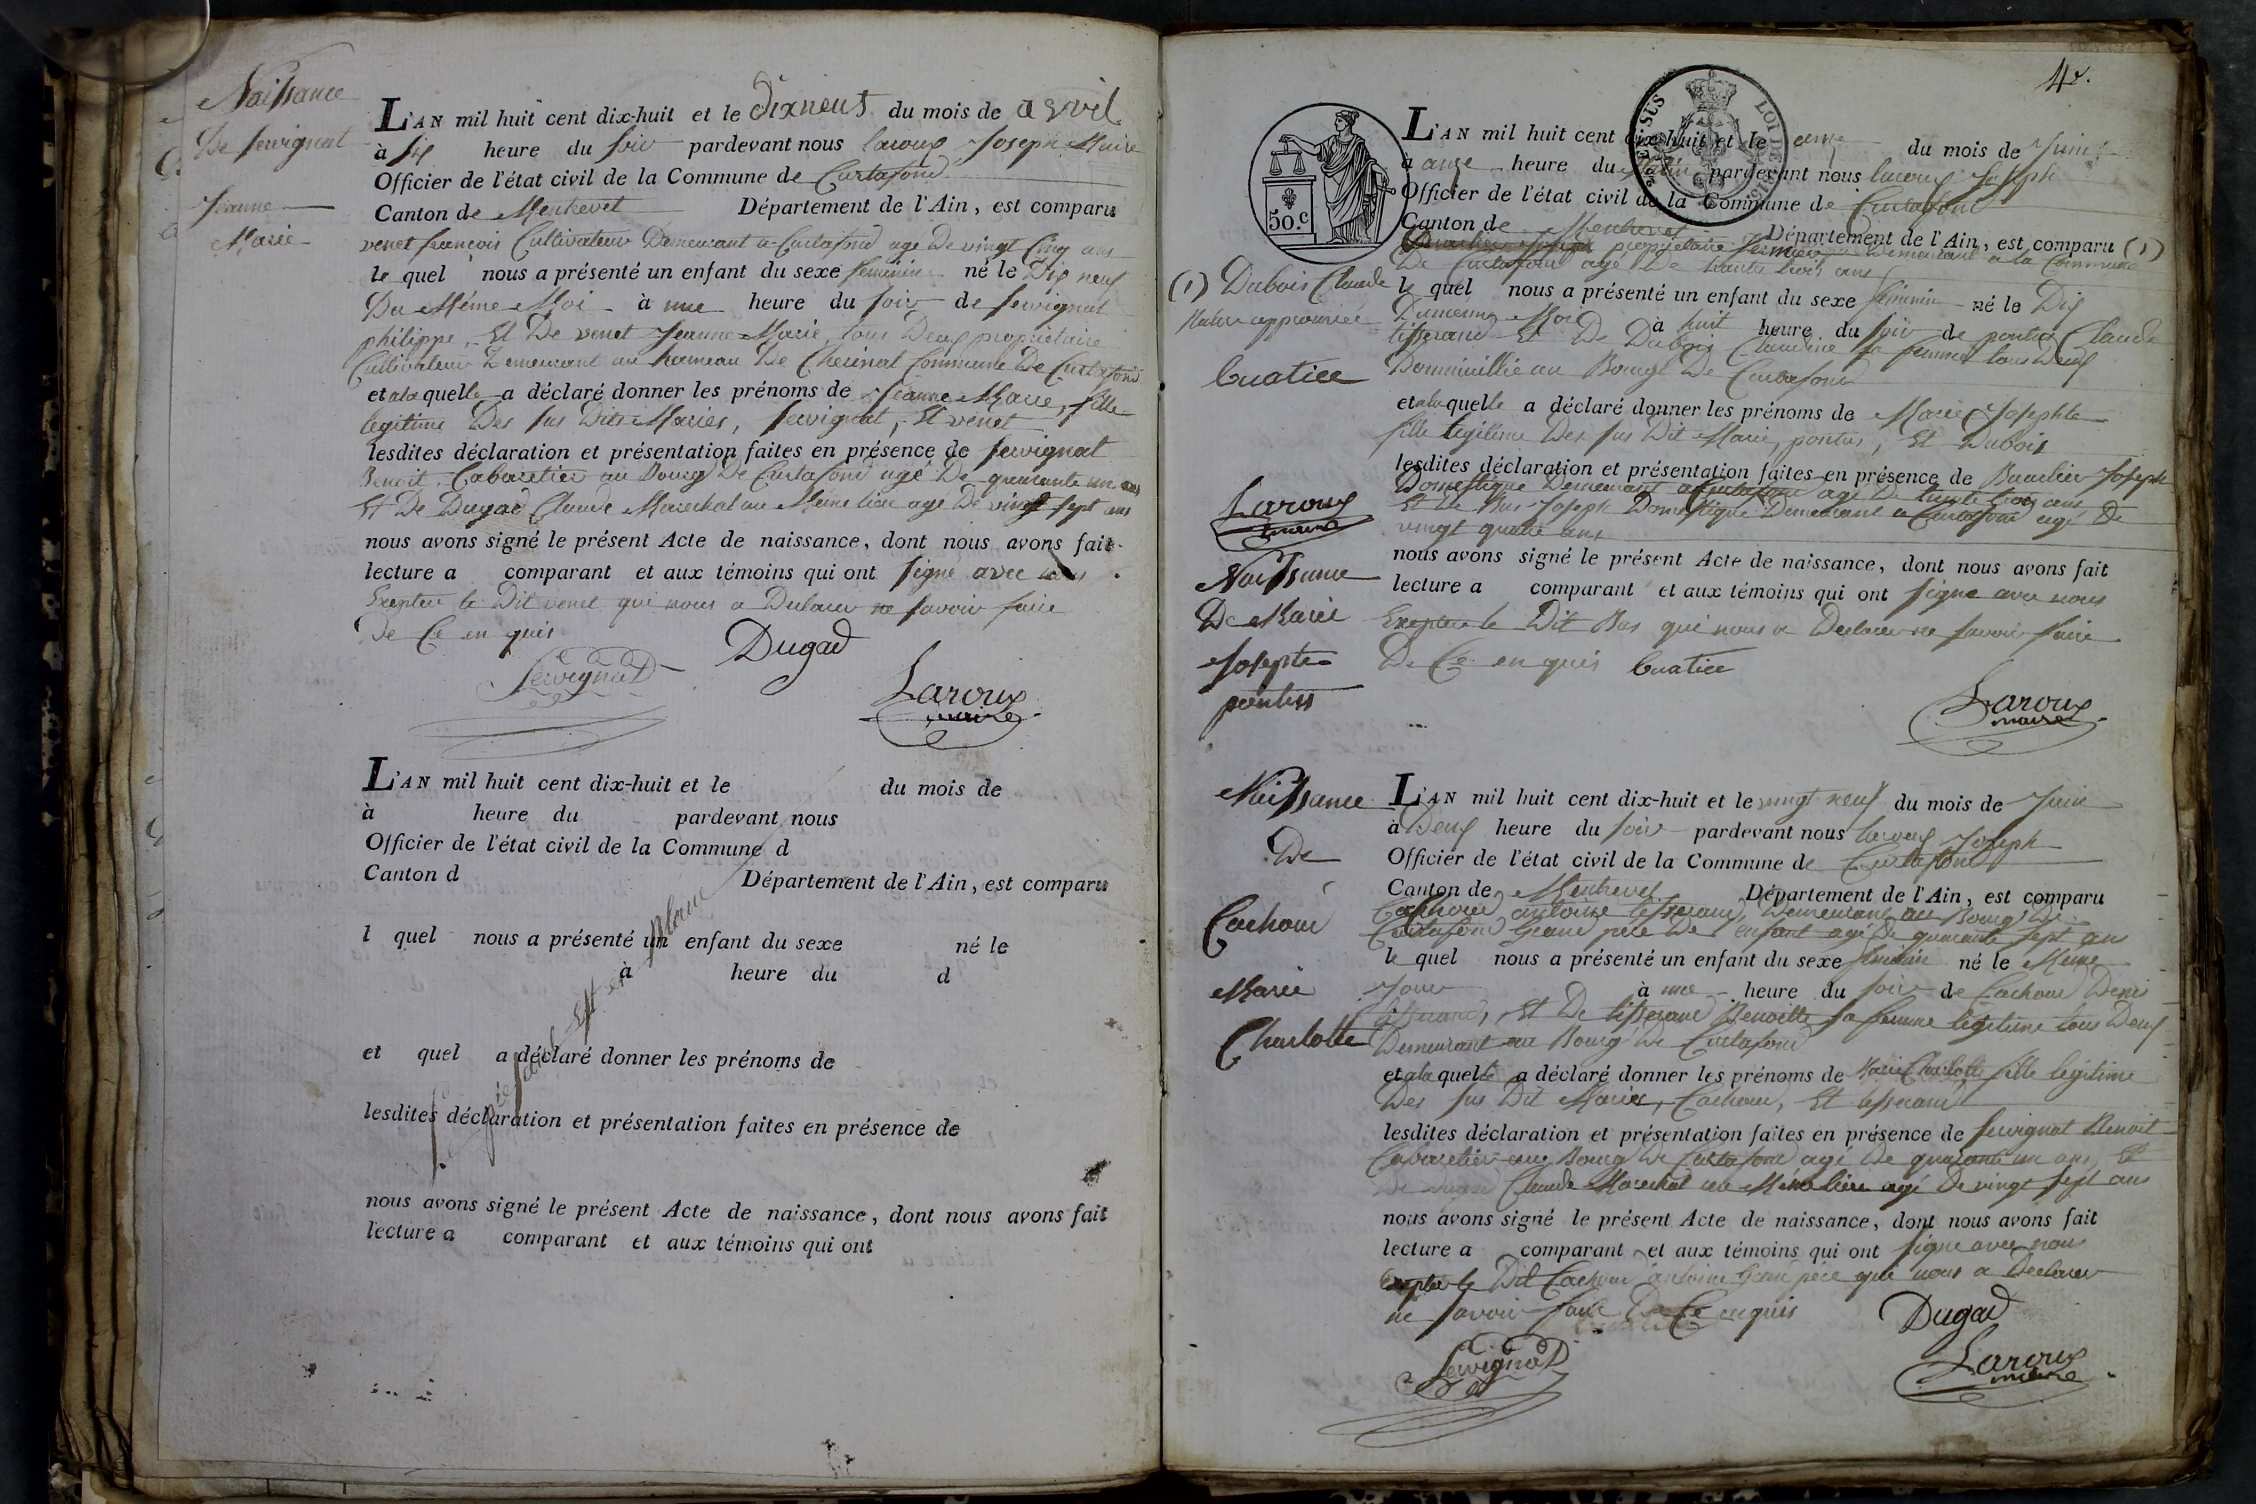 Naissance
De servignat
Jeanne
Marie
L'AN mil huit cent dix-huit et le dixneuf du mois de avril
à six heure du soir pardevant nous laroux Joseph Maire
Officier de l'état civil de la Commune de Curtafond
Canton de Montrevel Département de l'Ain, est comparu
venet françois Cultivateur Demeurant a Curtafond age De vingt Cinq ans
le quel nous a présenté un enfant du sexe feminin né le Dix neuf
Du Méme Moi à une heure du soir de servignat
philippe, Et De venet Jeanne Marie, tous Deux propriétaire
Cultivateur Demeurant au hameau De Commune De Curtafond
et a la quelle a déclaré donner les prénoms de Jeanne Marie, fille
legitime Des sus Dits Mariés, servignat, Et venet
lesdites déclaration et présentation faites en présence de servignat
Benoit Cabaretier au Bourg De Curtafond agé De quarante un ans
Et De Dugad Claude Marechal au Meme lieu age De vingt sept ans
nous avons signé le présent Acte de naissance, dont nous avons fait
lecture a comparant et aux témoins qui ont signé avec nous
Excepter le Dit venet qui nous a Declarer ne savoir faire
De Ce en quis
Servignat Dugad
Laroux
maire
L'AN mil huit cent dix-huit et le du mois de
à heure du pardevant nous
Officier de l'état civil de la Commune d
Canton d Département de l'Ain, est comparu
l quel nous a présenté un enfant du sexe né le
à heure du d
et quel a déclaré donner les prénoms de
lesdites déclaration et présentation faites en présence de
nous avons signé le présent Acte de naissance, dont nous avons fait
lecture a comparant et aux témoins qui ont
Est en Blanc
4e.
50.c
EN SUS
LOI DE
L'AN mil huit cent dix-huit et le onze du mois de Juin
à onze heure du Matin pardevant nous laroux Joseph
Officier de l'état civil de la Commune de Curtafond
Canton de Montrevel Département de l'Ain, est comparu (1)
Joseph propriétaire Demeurant a la Commune
De Curtafond agé De trante trois ans
(1) Dubois Claude
approuvée
le quel nous a présenté un enfant du sexe féminin né le Dix
Dumeme Moi à huit heure du soir de pontus Claude
tisserand Et De Dubois Claudine sa femme tous Deux
Dommicillié au Bourg De Curtafond
et a la quelle a déclaré donner les prénoms de Marie Josephte
fille legitime Des sus Dit Marié, pontus, Et Dubois
lesdites déclaration et présentation faites en présence de Joseph
Domestique Demeurant a Curtafond agé De trante trois ans
Et De Bus Joseph Domestique Demeurant a Curtafond agé De
vingt quatre ans
Laroux
maire
nous avons signé le présent Acte de naissance, dont nous avons fait
lecture a comparant et aux témoins qui ont signé avec nous
Excepter le Dit Bus qui nous a Declarer ne savoir faire
De Ce en quis
Naissance
De Marie
Josephte
pontus
Laroux
maire
Naissance
De
Cachour
Marie
Charlotte
L'AN mil huit cent dix-huit et le vingt neuf du mois de Juin
à Deux heure du soir pardevant nous laroux Joseph
Officier de l'état civil de la Commune de Curtafond
Canton de Montrevel Département de l'Ain, est comparu
Cachour antoine tisserand, Demeurant au Bourg De
Curtafond Grand pere De l'enfant agé De quarante sept ans
le quel nous a présenté un enfant du sexe feminin né le Meme
Jour à une heure du soir de Cachour Denis
tisserand, Et De tisserand Benoitte sa femme legitime tous Deux
Demeurant au Bourg De Curtafond
et a la quelle a déclaré donner les prénoms de Marie Charlotte fille legitime
Des sus Dit Mariés, Cachour, Et tisserand
lesdites déclaration et présentation faites en présence de servignat Benoit
Cabaretier au Bourg De Curtafond agé De quarante un ans, Et
De Dugad Claude Marechal au Méme lieu agé De vingt sept ans
nous avons signé le présent Acte de naissance, dont nous avons fait
lecture a comparant et aux témoins qui ont signé avec nous
Excepter le Dit Cachour antoine Grand pére qui nous a Declarer
ne savoir faire De Ce en quis
Dugad
Servignat
Laroux
maire